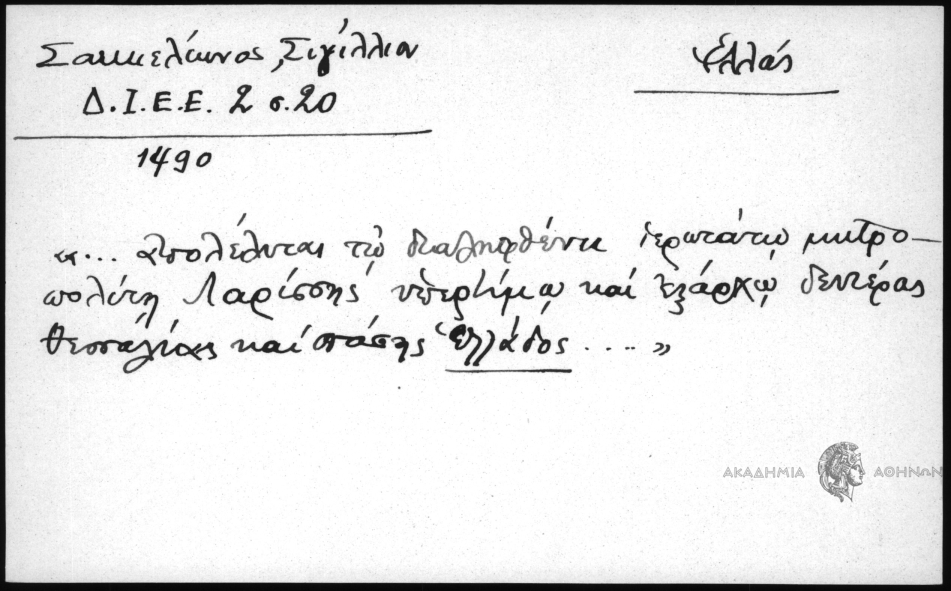 Σακκελίωνος, Σιγίλλιον
Ἑλλάς
Δ.Ι.Ε.Ε. 2 σ. 20
1490
«... ἀπολέλυται τῷ διαληφθέντι ἱερωτάτῳ μητρο-
πολίτῃ Λαρίσσης ὑπερτίμῳ καὶ ἐξάρχῳ δευτέρας
Θεσσαλίας καὶ πάσης Ἑλλάδος .... »
ΑΚΑΔΗΜΙΑ ΑΘΗΝΩΝ